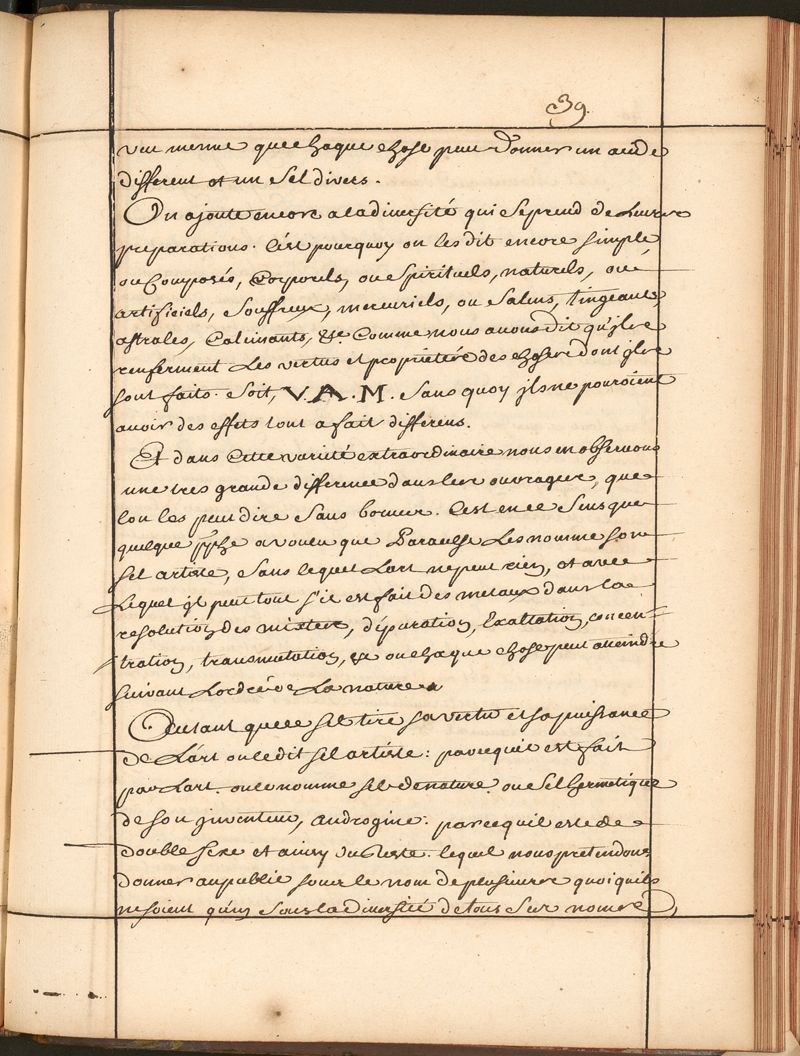 39.
veu mesme que chaque chose peut donner un acide
different et un sel divers.
On ajoute encore a la diversité qui se prend de leurs
preparations. C'est pourquoy on les dit encore simple
ou Composés, Corporels, ou Spirituels, naturels, ou
artificiels, Souffreux, mercuriels, ou Salins, tingeants,
astrales, Calcinants, &c. Comme nous avons dit qu'ils
renferment les vertus et proprietés des choses dont ils
sont faits. soit, V. A. M. Sans quoy ils ne pouroient
avoir des effets tout a fait differens.
Et dans Cette varieté extraordinaire nous en observons
une tres grande difference dans leurs ouvrages, que
lon les peut dire sans bornes. C'est en ce Sens que
quelque a voulu que Paraculse les nomme son
sel artiste, Sans lequel L'art ne peut rien, et avec
Lequel il peut tout s'il est fait des metaux dans la
resolution des mixtes, dépuration, Exaltation, concen-
tration, transmutation, &c ou chaque chose peut atteindre
suivant Lordre de La nature.
Autant que ce sel tire sa vertu et sa puissance
de L'art on le dit sel artiste: parcequ'il est fait
par L'art. on le nomme sel de nature. ou Sel hermetique
de son inventeur, Androgine. parcequ'il est de
double sexe et ainsy du Reste. lequel nous pretendons
donner au public sous le nom de plusieurs quoiquils
ne soient qu'un sous la diversité de tous Ses noms